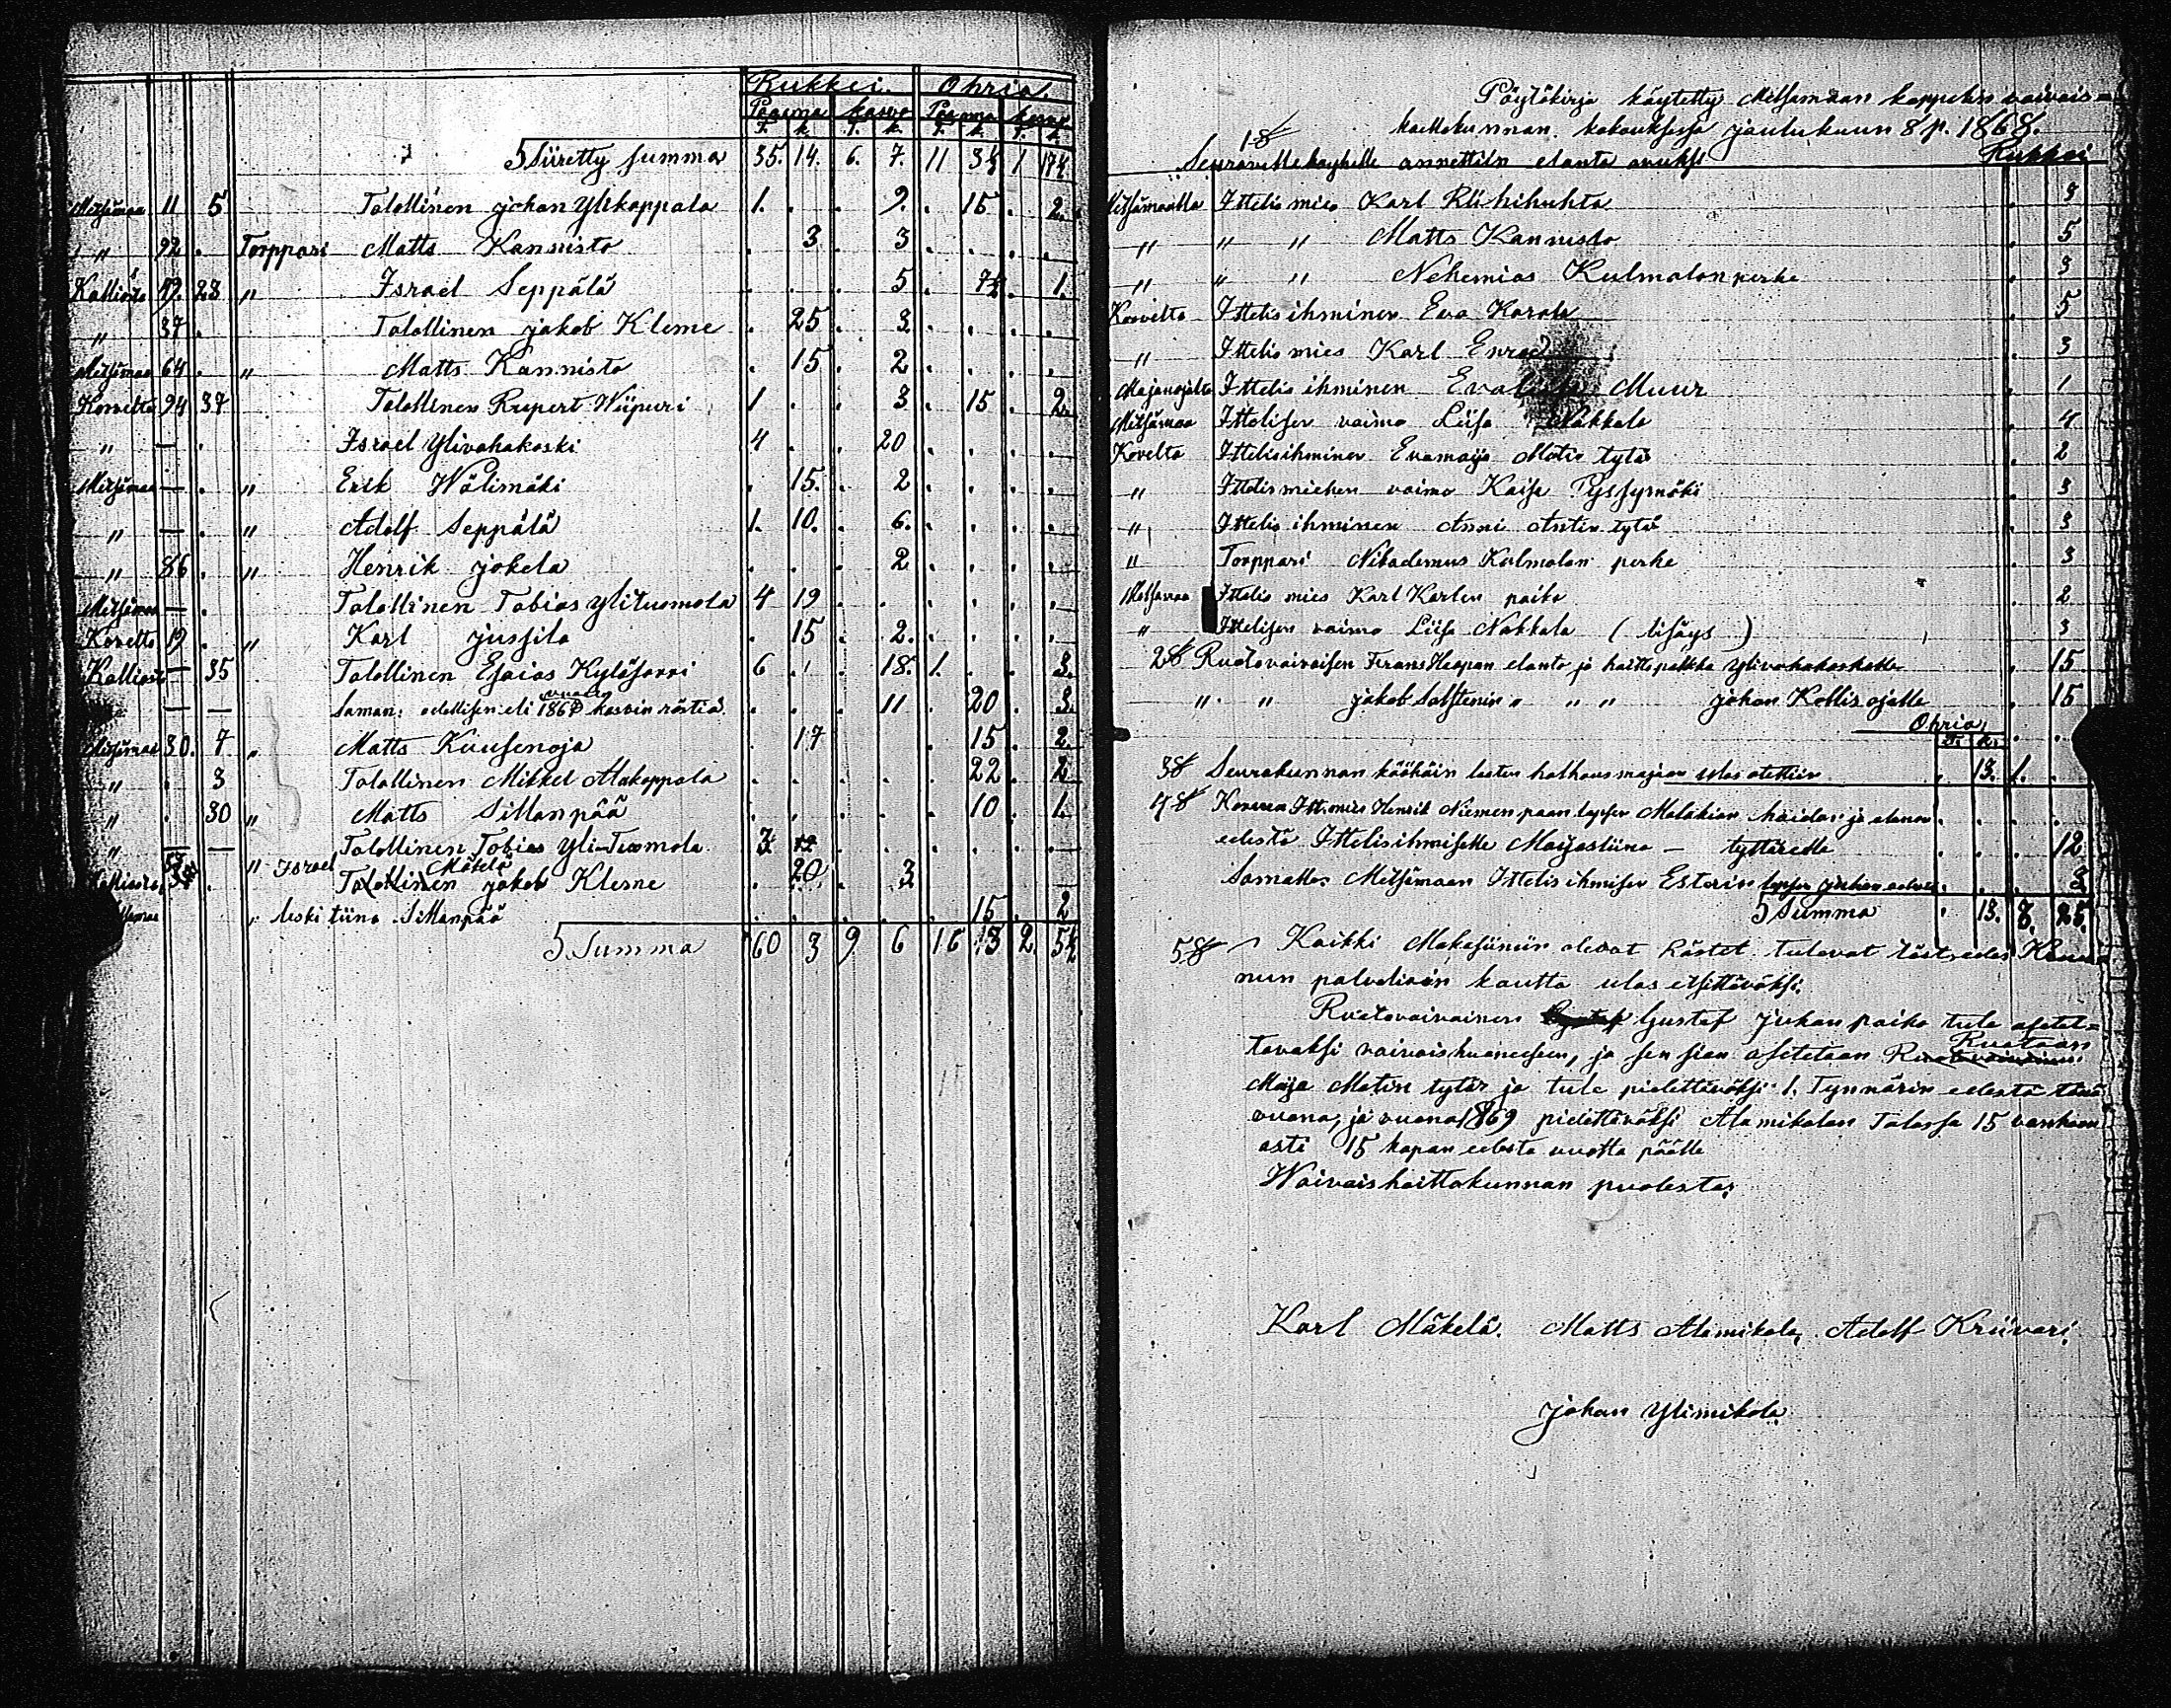 Rukkei. Ohria.
Paama kasvo Paama kasvo
T. k. T. k. T. k. T. k.
Siiretty summa 35. 14. 6. 7. 11 3½ 1 17½
Metsämaa 11 5 Talollinen johan Ylikappala 1. . . 9. . 15 . 2.
" 92 . Torppari Matts Kannisto . 3 . 3 . . . .
Kalliosta 49. 28 " Israel Seppälä . . . 5 . 7½ . 1.
" 37 . Talollinen jakob Kleme . 25 . 3 . . . .
Metsämaa 64 . " Matts Kannisto . 15 . 2 . . . .
Korvelta 94 37 Talollinen Rupert Wiipuri 1 . . 3 . 15 . 2
" — . Israel Ylivahakoski 4 . . 20 . . . .
Metsämaa — . " Erik Wälimäki . 15. . 2 . . . .
" — . " Adolf Seppälä 1. 10. . 6. . . . .
" 86 . " Henrik jokela . . . 2 . . . .
Metsämaa — . Talollinen Tobias Ylituomola 4 19 . . . . . .
Korvelta 19 . " Karl jussila . 15 . 2. . . . .
Kalliosta — 35 Talollinen Esaias Kyläjarri 6 . . 18. 1. . . 3.
— — Saman: edellisen eli 186 vuoden kasvin rästiä . . . 11 . 20 . 3.
Metsämaa 30. 7 " Matts Kuusenoja . 17 . . . 15 . 2.
" . 3 Talollinen Mikkel Alakappala . . . . . 22 . 2
" . 30 " Matts Sillanpää . . . . . 10 . 1.
" — — Talollinen Tobias Yli-Tuomola 3 12 . . . . . .
" Israel Mäkelä
Talollinen jakob Kleme . 20 . 3 . . . .
" leski tiina Sillanpää . 15 . 2
Summa 60 3 9 6 16 13 2. 5½
Pöytäkirja käytetty Metsämaan kappelin vaivais=
hoittokunnan kokouksessa joulukuun 8 p. 1868.
1§ Seuraville köyhille annettiin elanto avuksi Rukkei
Metsämaalta Ittelis mies Karl Riihihuhta . 3
" " " Matts Kannisto . 5
" " " Nehemias Kulmalan perhe . 3
Korvelta Ittelis ihminen Eva Harala . 5
" Ittelis mies Karl . 3
Majanojalta Ittelis ihminen Eva Muur . 1
Metsämaa Ittelisen vaimo Liisa Nakkala . 4
Kovelta Ittelisihminen Evamaija Matin tytär . 2
" Ittelis miehen vaimo Kaisa Pyssymäki . 3
" Ittelis ihminen Anni Antin tytär . 3
" Torppari Nikademus Kulmalan perhe . 3
Metsämaa Ittelis mies Karl Karlin poika . 2
" Ittelisen vaimo Liisa Nakkala ( lisäys ) . 3
2§ Ruotovaivaisen Frans Haapan elanto ja hoittopalkka Ylivahakoskelle . 15
" " jakob Salstenin " " " johan Kollis ojalle . 15
Ohria,
T. k.
3§ Seurakunnan köökäin lasten holhousmajaan ulos otettiin . 13. 1. .
4§ Korvaa Itt. mies Henrik Niemenpään lapsen Malakian hoidon ja elanon . . . .
edestä Ittelisihmiselle Maijastiina — tyttärelle . . . 12
Samalle. Metsämaan Ittelis ihmisen Esterin lapsen johan edest . . . 3
Summa . 13. 8. 25.
5§ Kaikki Makasiiniin olevat Rästet tulevat täst edes Kruu-
nun palvelivain kautta ulos etsittäväksi.
Ruotovaivainen Gustaf Juhan poika tule asetel=
tavaksi vaivaishuoneeseen, ja sen sian asetetaan Ruotaan
Maija Matin tytär ja tule pidettäväksi 1. Tynnärin edestä tänä
vuona, ja vuona 1869 pidettäväksi Alamikolan Talossa 15 vanhaan
asti 15 kapan edesta vuotta päälle
Waivaishoittokunnan puolesta;
Karl Mäkelä. Matts Alamikola, Adolf Kriivari,
johan Ylimikola